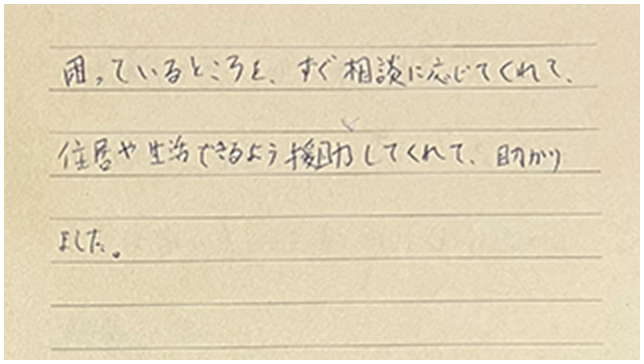 困っているところを、すぐ相談に応じてくれて、
住居や生活できるよう援助してくれて、助かり
ました。